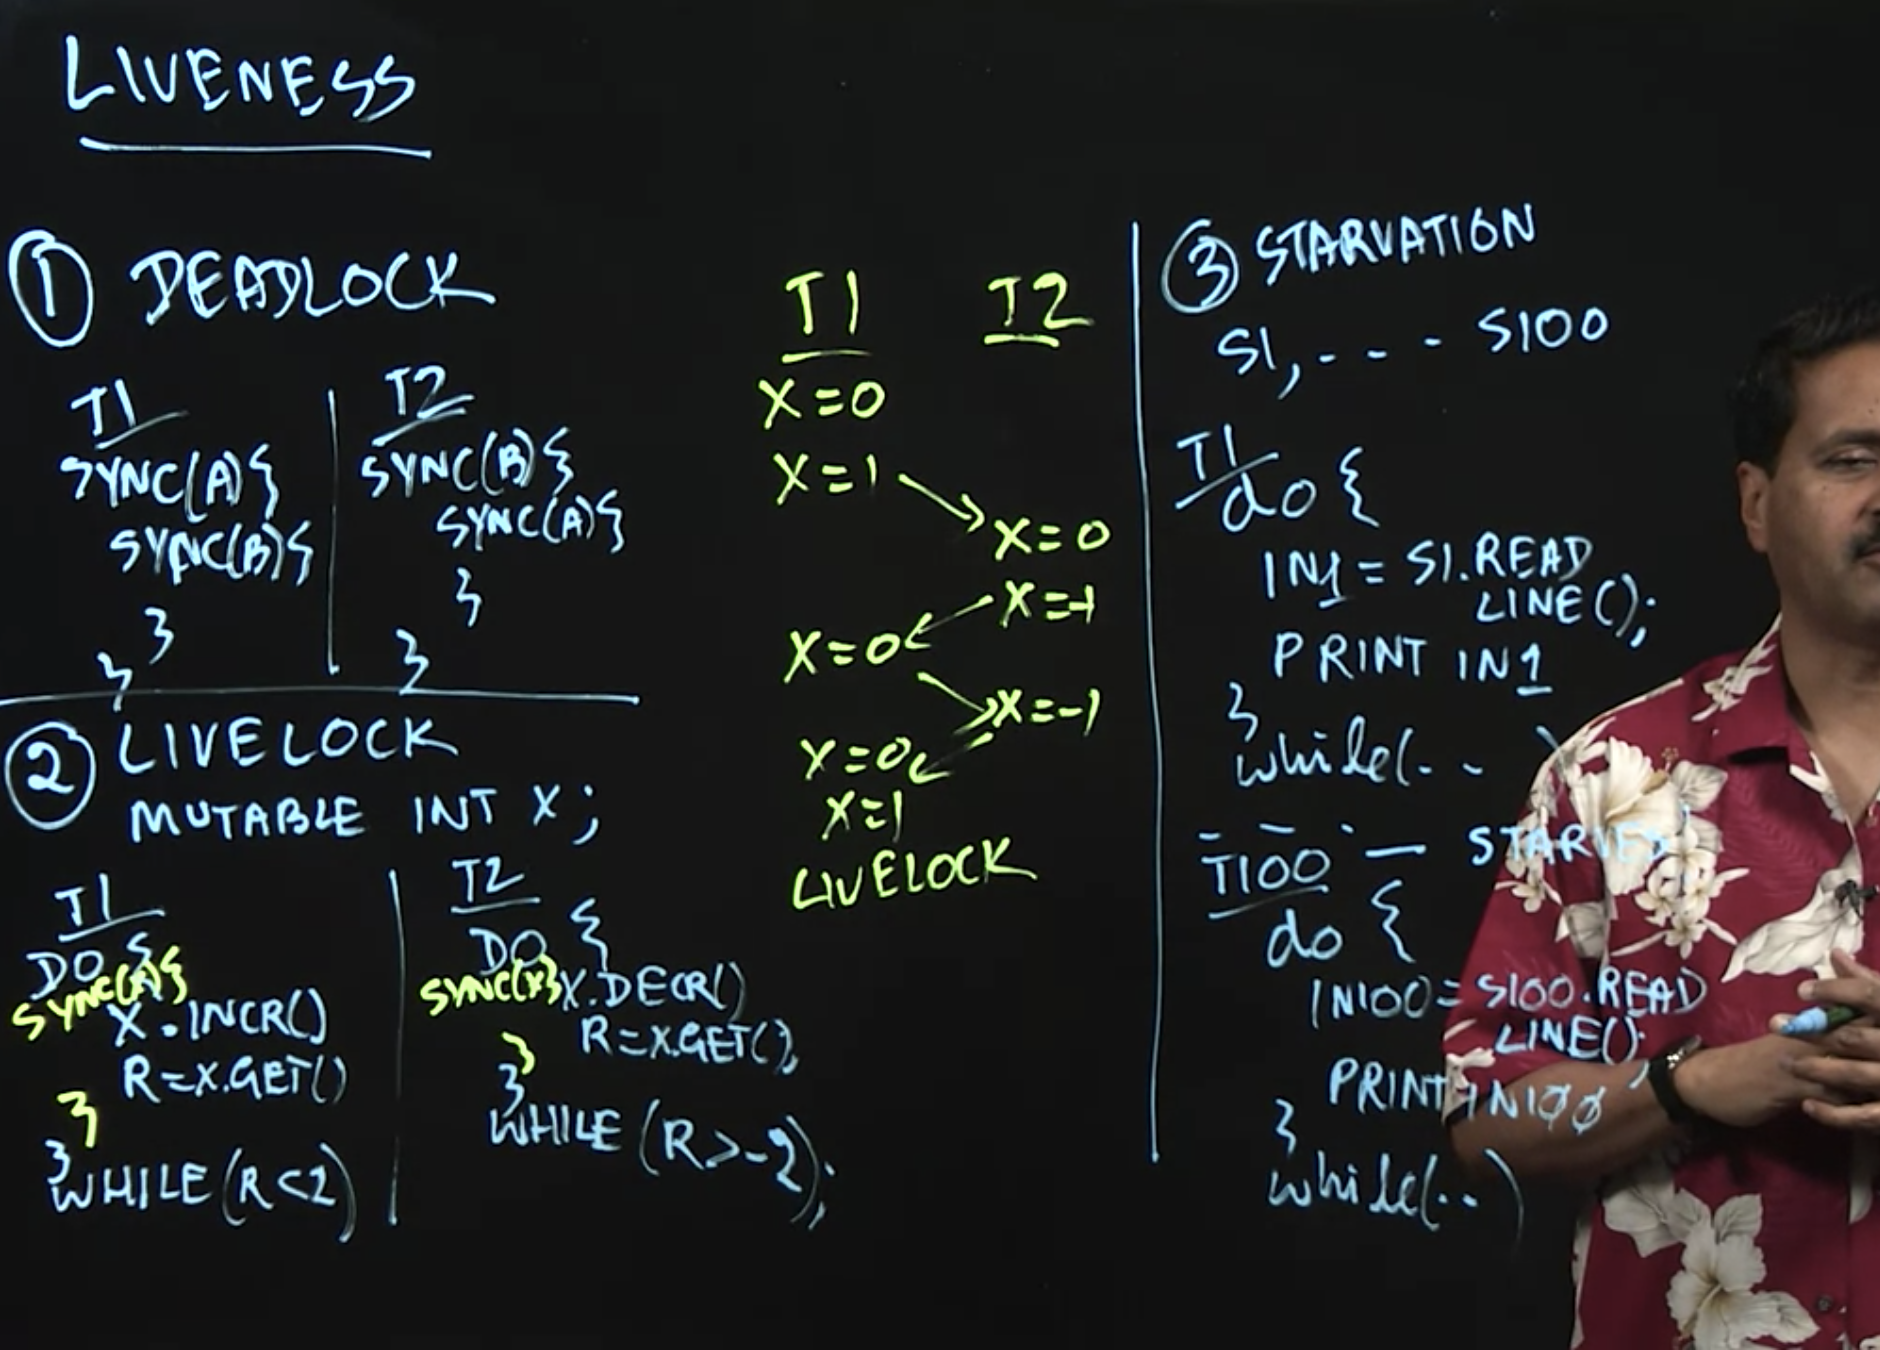 LIVENESS
① DEADLOCK
T1
SYNC(A){
SYNC(B){
}
}
T2
SYNC(B){
SYNC(A){
}
}
② LIVELOCK
MUTABLE INT X;
T1
DO {
SYNC(X){
X.INCR()
R=X.GET()
}
}
WHILE(R<2)
T2
DO {
SYNC(X){ X.DECR()
R=X.GET();
}
}
WHILE (R>-2);
T1 T2
X=0
X=1
X=0
X=-1
X=0
X=-1
X=0
X=1
LIVELOCK
③ STARVATION
S1, - - - S100
T1
do {
IN1 = S1.READ
LINE();
PRINT IN1
}
while(.. )
- - -
T100 — STARVED
do {
IN100 = S100.READ
LINE();
PRINT IN100
}
while(..)